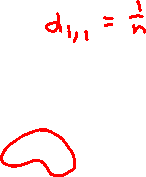 d_{1,1} = \frac{1}{n}